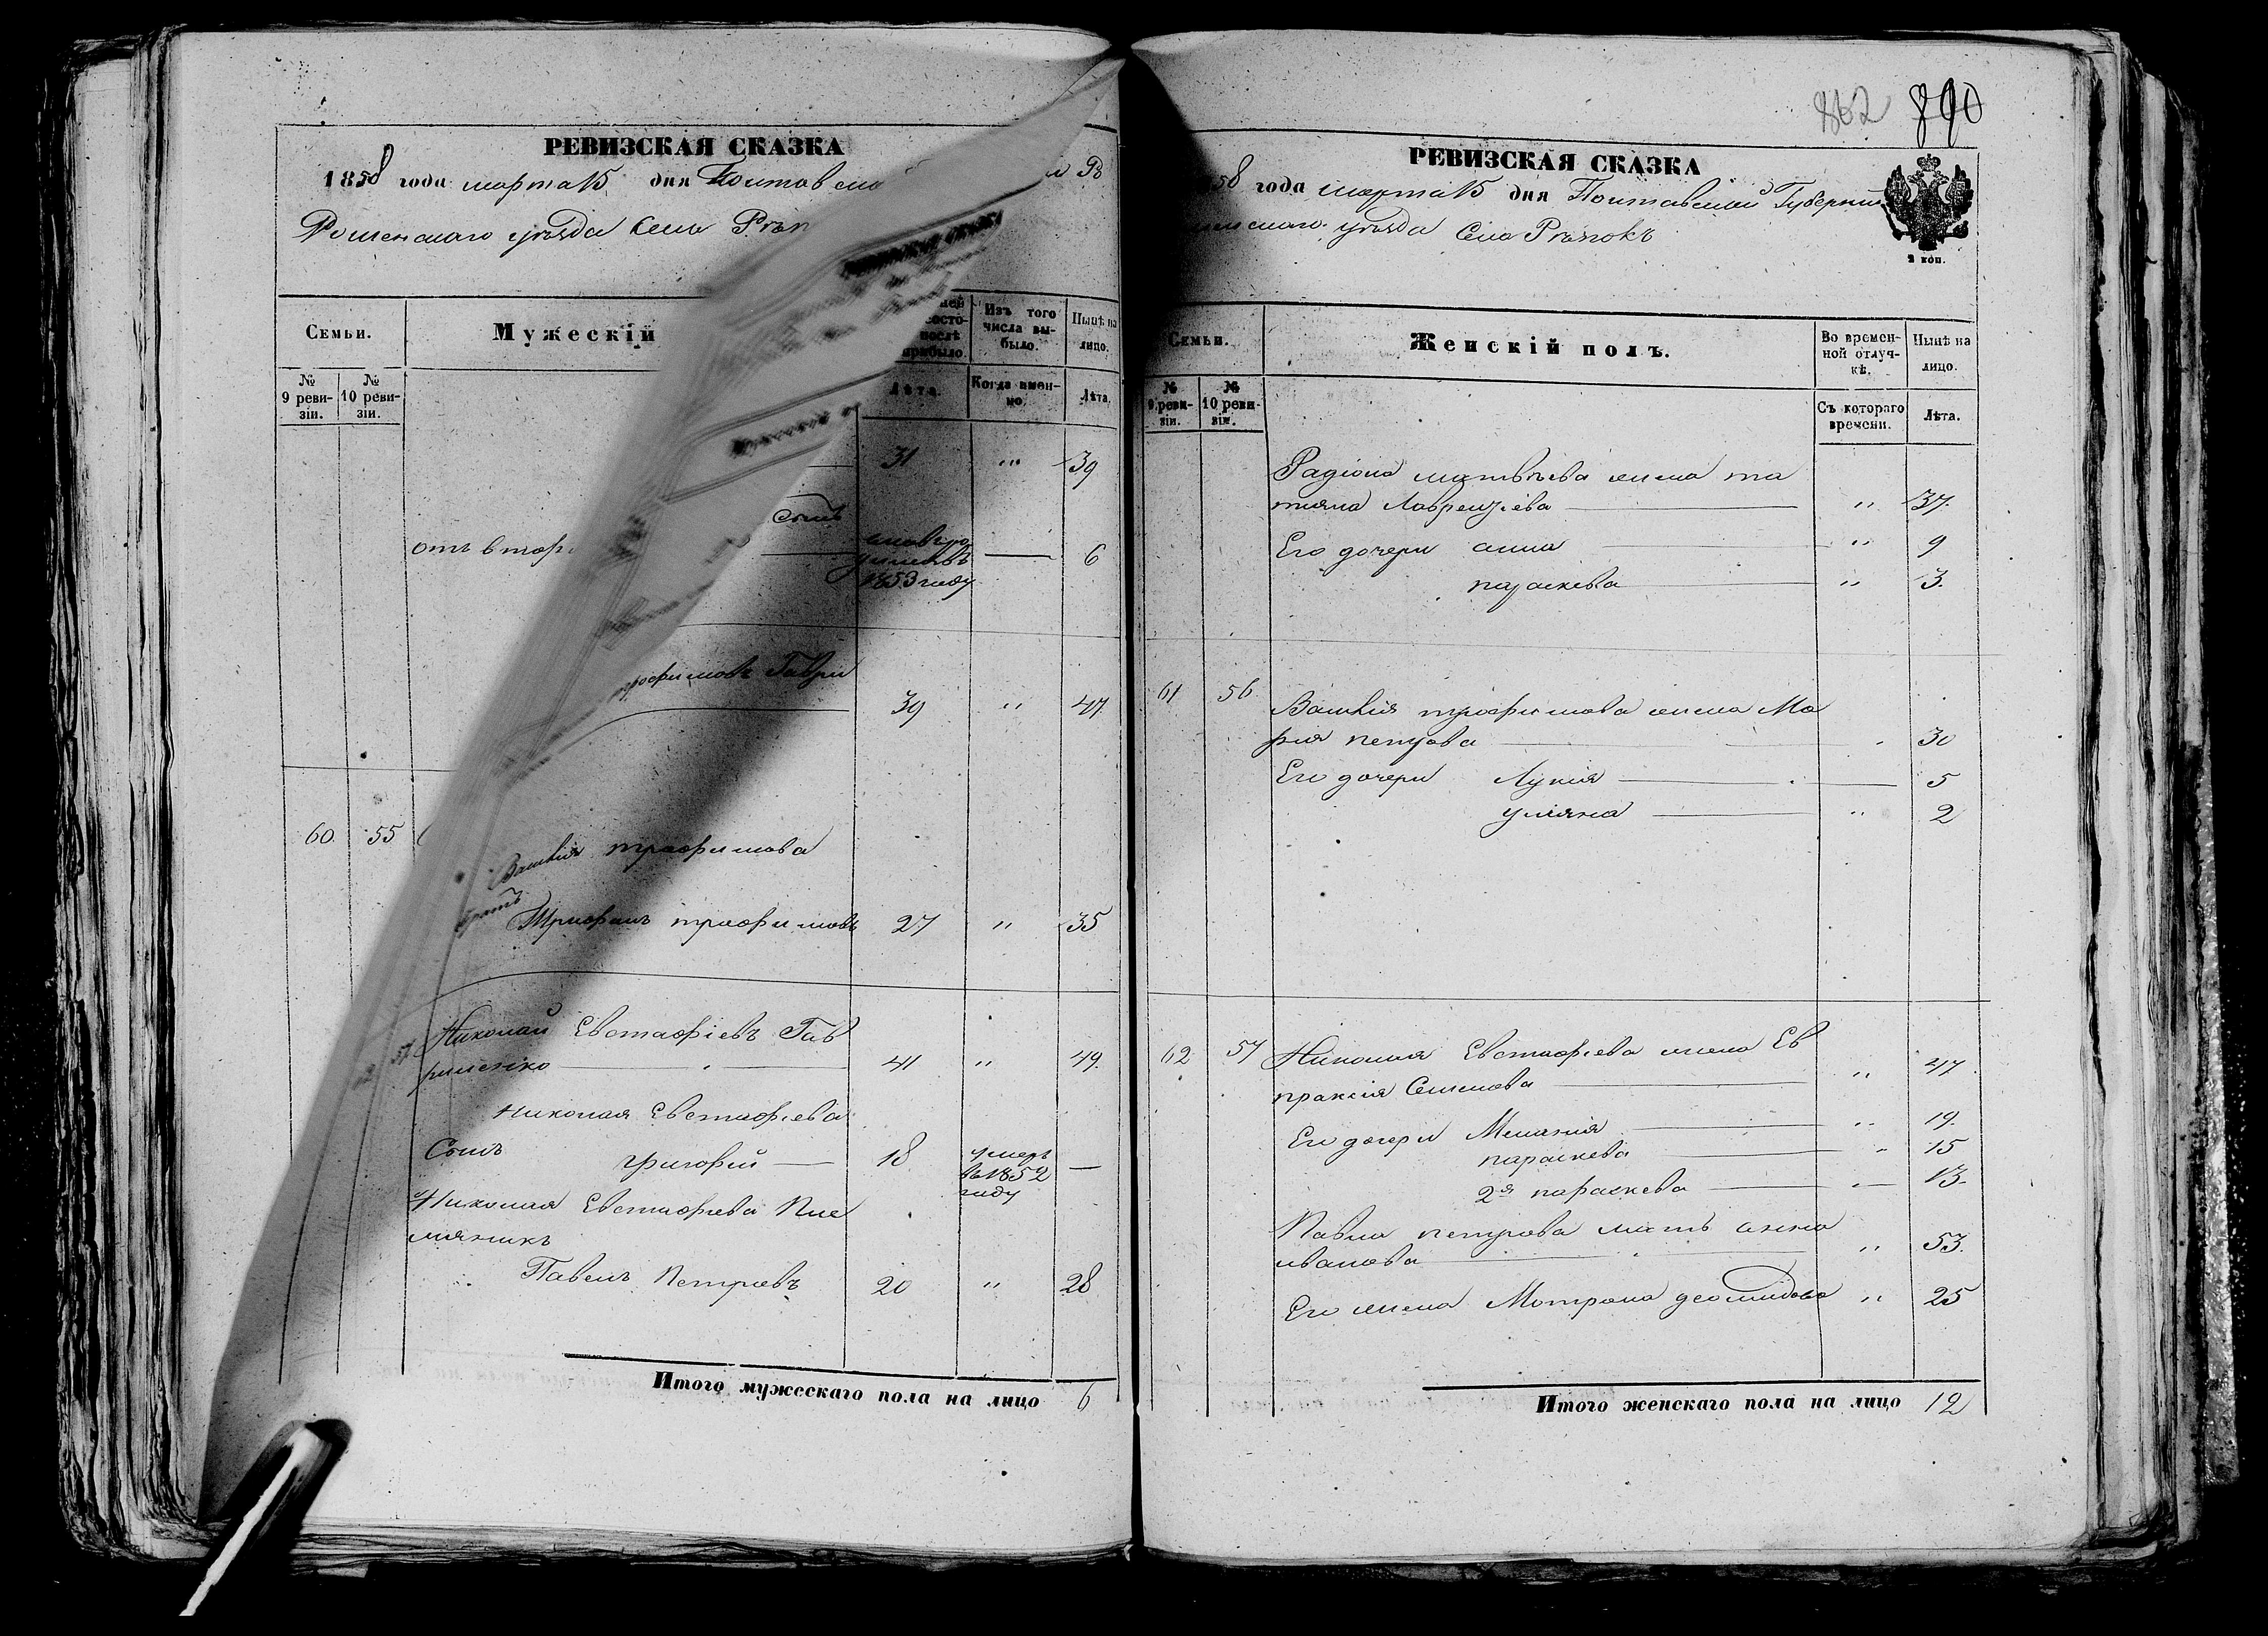 862 890
РЕВИЗСКАЯ СКАЗКА
1858 года марта 15 дня Полтавской
Роменскаго уѣзда Села
Семьи.
Мужескій
Изъ того числа вы-
было.
Нынѣ на
лицо.
№
9 реви-
зіи.
№
10 реви-
зіи.
Лѣта.
Когда имен-
но.
Лѣта.
31 " 39
Сынъ
1853 году
6
трофимовъ Гаври
39 " 47
60 55
Василія трофимова
братъ
Трифонъ трофимовъ 27 " 35
57 Николай Евстафіевъ Гав
риленко 41 " 49.
Николая Евстафіева
Сынъ
Григорій 18 умеръ
въ 1852
году
Николая Евстафіева Пле
мяникъ
Павелъ Петровъ 20 " 28
Итого мужескаго пола на лицо 6
РЕВИЗСКАЯ СКАЗКА
58 года марта 15 дня Полтавской Губерніи
уѣзда Села
2 коп.
Семьи.
Женскій полъ.
Во времен-
ной отлуч-
кѣ.
Нынѣ на
лицо.
№
9 реви-
зіи.
№
10 реви-
зіи.
Съ котораго
времени.
Лѣта.
Радіона матвѣева жена та
тияна Лаврентіева " 37.
Его дочери анна " 9
параскева " 3.
61 56 Василія трофимова жена Ма
рія петрова 30
Его дочери Лукія 5
уліяна " 2
62 57 Николая Евстафіева жена Ев
праксія Семенова " 47
Его дочери Меланія " 19.
параскева " 15
2я параскева " 13.
Павла петрова мать анна
иванова " 53.
Его жена Мотрона деомидова " 25
Итого женскаго пола на лицо 12